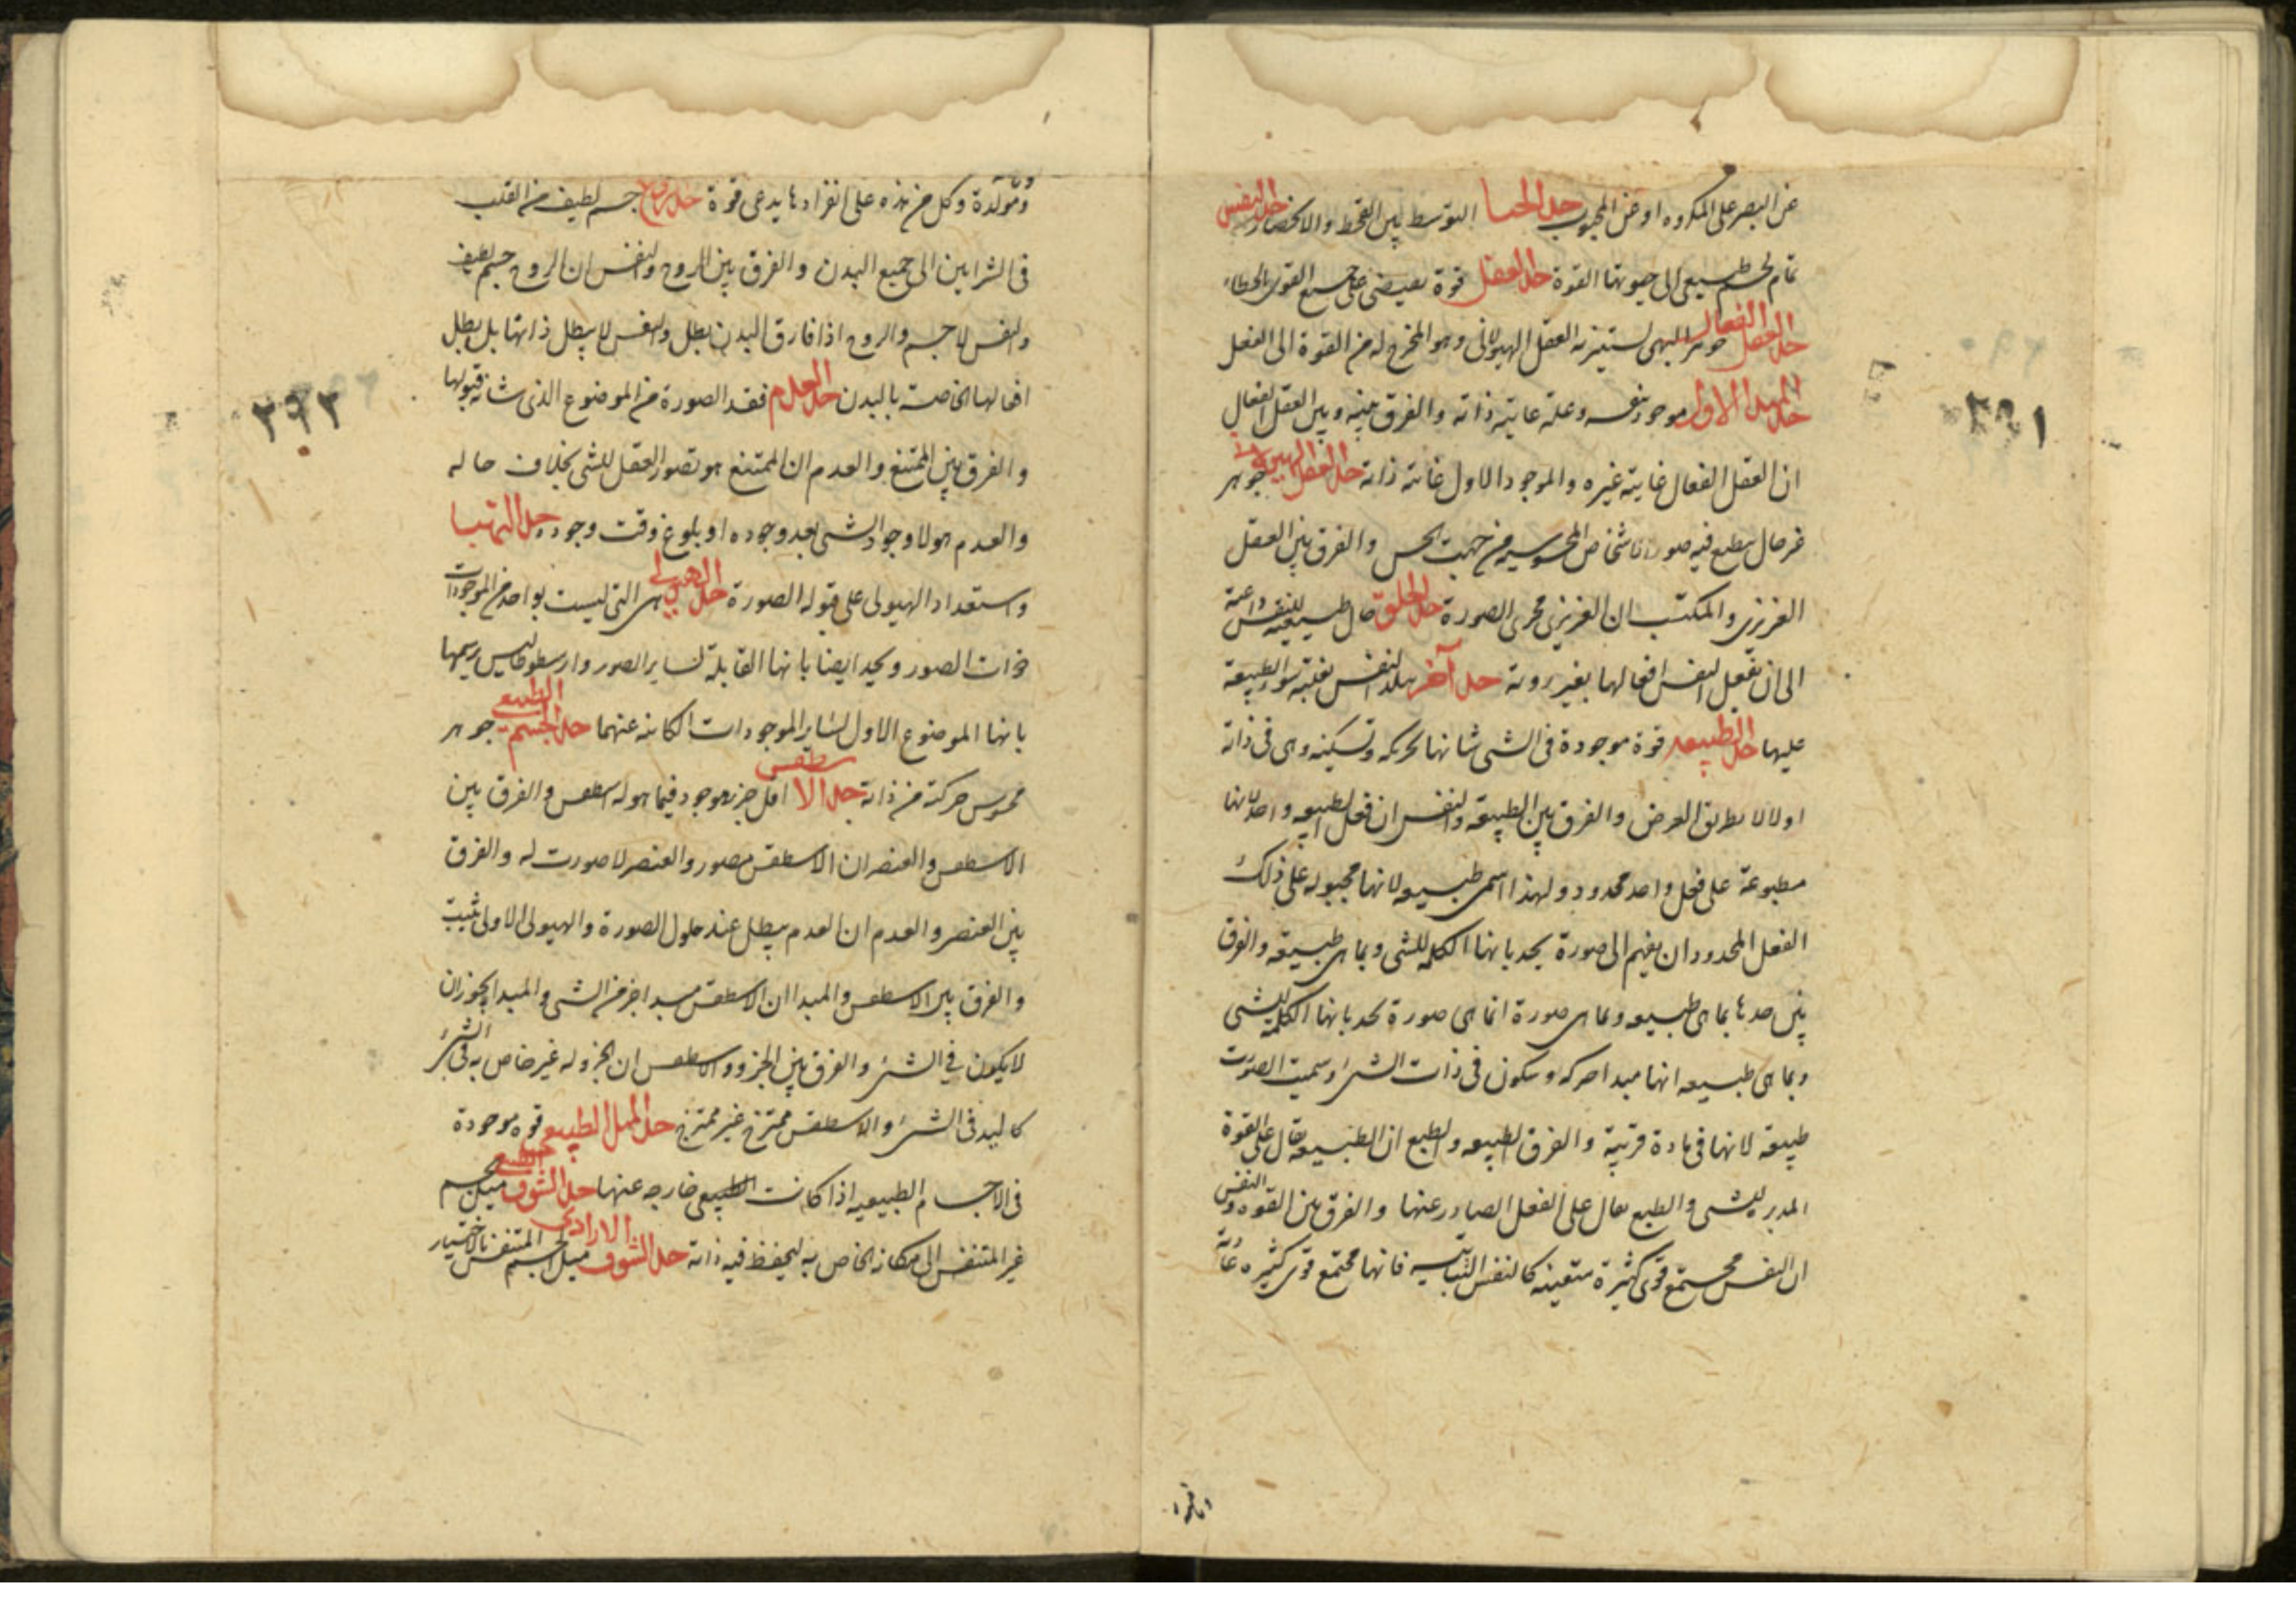 عن البصر على المكروه او عن المحبوب حد الحيا التوسط بين القحط والانحصار حد النفس
تمام لجسم طبيعى الى حيوتها القوة حد العقل قوة بعيضى على جميع القوى بالخطاء
حد العقل الفعال جوهر الهى يستنير به العقل الهيولانى وهو المخرج له من القوة الى الفعل
حد المبدا الاول موجود بنفسه وعلة غايته ذاته والفرق بينه وبين العقل الفعال
ان العقل الفعال غايته غيره والموجود الاول غايته ذاته حد العقل الهيولانى جوهر
غير حال ينطبع فيه صور اشخاص المحسوسه من جهت الحس والفرق بين العقل
الغريزى والمكتسب ان الغريزى مجرى الصورة حد الخلق حال طبيعية للنفس داعية
الى ان تفعل النفس افعالها بغير روية حد آخر للنفس بغلبة سور الطبيعة
عليها حد الطبيعه قوة موجودة فى الشى شانها تحركه وتسكينه وهى فى ذاته
اولا لا بطريق العرض والفرق بين الطبيعة والنفس ان فعل الطبيعه واحد لانها
مطبوعة على فعل واحد محدود ولهذا اسمى طبيعه لانها مجبوله على ذلك
الفعل المحدود ان يفهم الى صورة يحد بانها الكمله للشى وبما هى طبيعه والفرق
بين حدها بما هى طبيعه وبما هى صورة انما هى صورة تحد بانها الكمله للشى
وبما هى طبيعه انها مبدا حركه وسكون فى ذات الشئ وسميت الصورت
طبيعه لانها فى مادة قريبة والفرق الطبيعه والطبع ان الطبيعه يقال على القوة
المدبر للشى والطبع يقال على الفعل الصادر عنها والفرق بين القوه والنفس
ان النفس مجتمع قوى كثيرة متعينه كالنفس النباتيه فانها مجتمع قوى كثيره غاذية
٣٩١
ومولدة وكل من هذه على انفرادها يدعى قوة حد الروح جسم لطيف من القلب
فى الشرايين الى جميع البدن والفرق بين الروح والنفس ان الروح جسم لطيف
والنفس لا جسم والروح اذا فارق البدن بطل والنفس لا يبطل ذاتها بل يبطل
افعالها الخاصة بالبدن حد العدم فقد الصورة من الموضوع الذى شانه قبولها
والفرق بين الممتنع والعدم ان الممتنع هو تصور العقل للشى بخلاف حاله
والعدم هو لا وجود الشى بعد وجوده او بلوغ وقت وجوده حد التهيا
واستعداد الهيولى على قبوله الصورة حد الهيولى هى التى ليست بواحد من الموجودات
ذات الصور ويحد ايضا بانها القابلة لساير الصور وارسطوطاليس يرسمها
بانها الموضوع الاول لساير الموجودات الكاينه عنهما حد الجسم الطبيعى جوهر
محسوس حركته من ذاته حد الاسطقس اقل جزء موجود فيما هو له اسطقس والفرق بين
الاسطقس والعنصر ان الاسطقس مصور والعنصر لا صورت له والفرق
بين العنصر والعدم ان العدم يبطل عند حلول الصورة والهيولى الاولى يثبت
والفرق بين الاسطقس والمبدا ان الاسطقس مبدا جزء من الشى والمبدا يجوز ان
لا يكون فى الشئ والفرق بين الجزو والاسطقس ان الجزو له غير خاص به فى الشئ
كاليد فى الشئ والاسطقس ممتزج غير ممتزج حد الميل الطبيعى قوه موجودة
فى الاجسام الطبيعيه اذا كانت الطبيعى خارجه عنها حد الشوق الطبيعى ميل جسم
غير المتنفس الى مكانه الخاص به ليحفظ فيه ذاته حد الشوق الارادى ميل الجسم المتنفس بالاختيار
٣٩٢